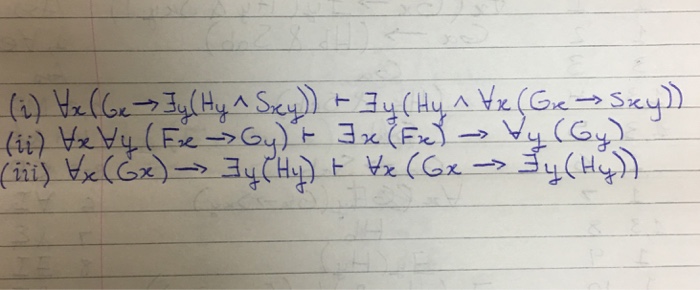 (i) ∀x(Gx → ∃y(Hy ∧ Sxy)) ⊢ ∃y(Hy ∧ ∀x(Gx → Sxy))
(ii) ∀x∀y(Fx → Gy) ⊢ ∃x(Fx) → ∀y(Gy)
(iii) ∀x(Gx) → ∃y(Hy) ⊢ ∀x(Gx → ∃y(Hy))